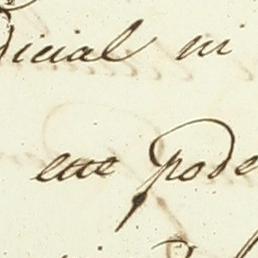 dicial ni
ette pode